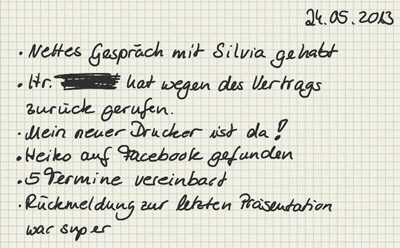 24.05.2013
· Nettes Gespräch mit Silvia gehabt
· Hr. hat wegen des Vertrags
zurück gerufen.
· Mein neuer Drucker ist da!
· Heiko auf Facebook gefunden
· 5 Termine vereinbart
· Rückmeldung zur letzten Präsentation
war super